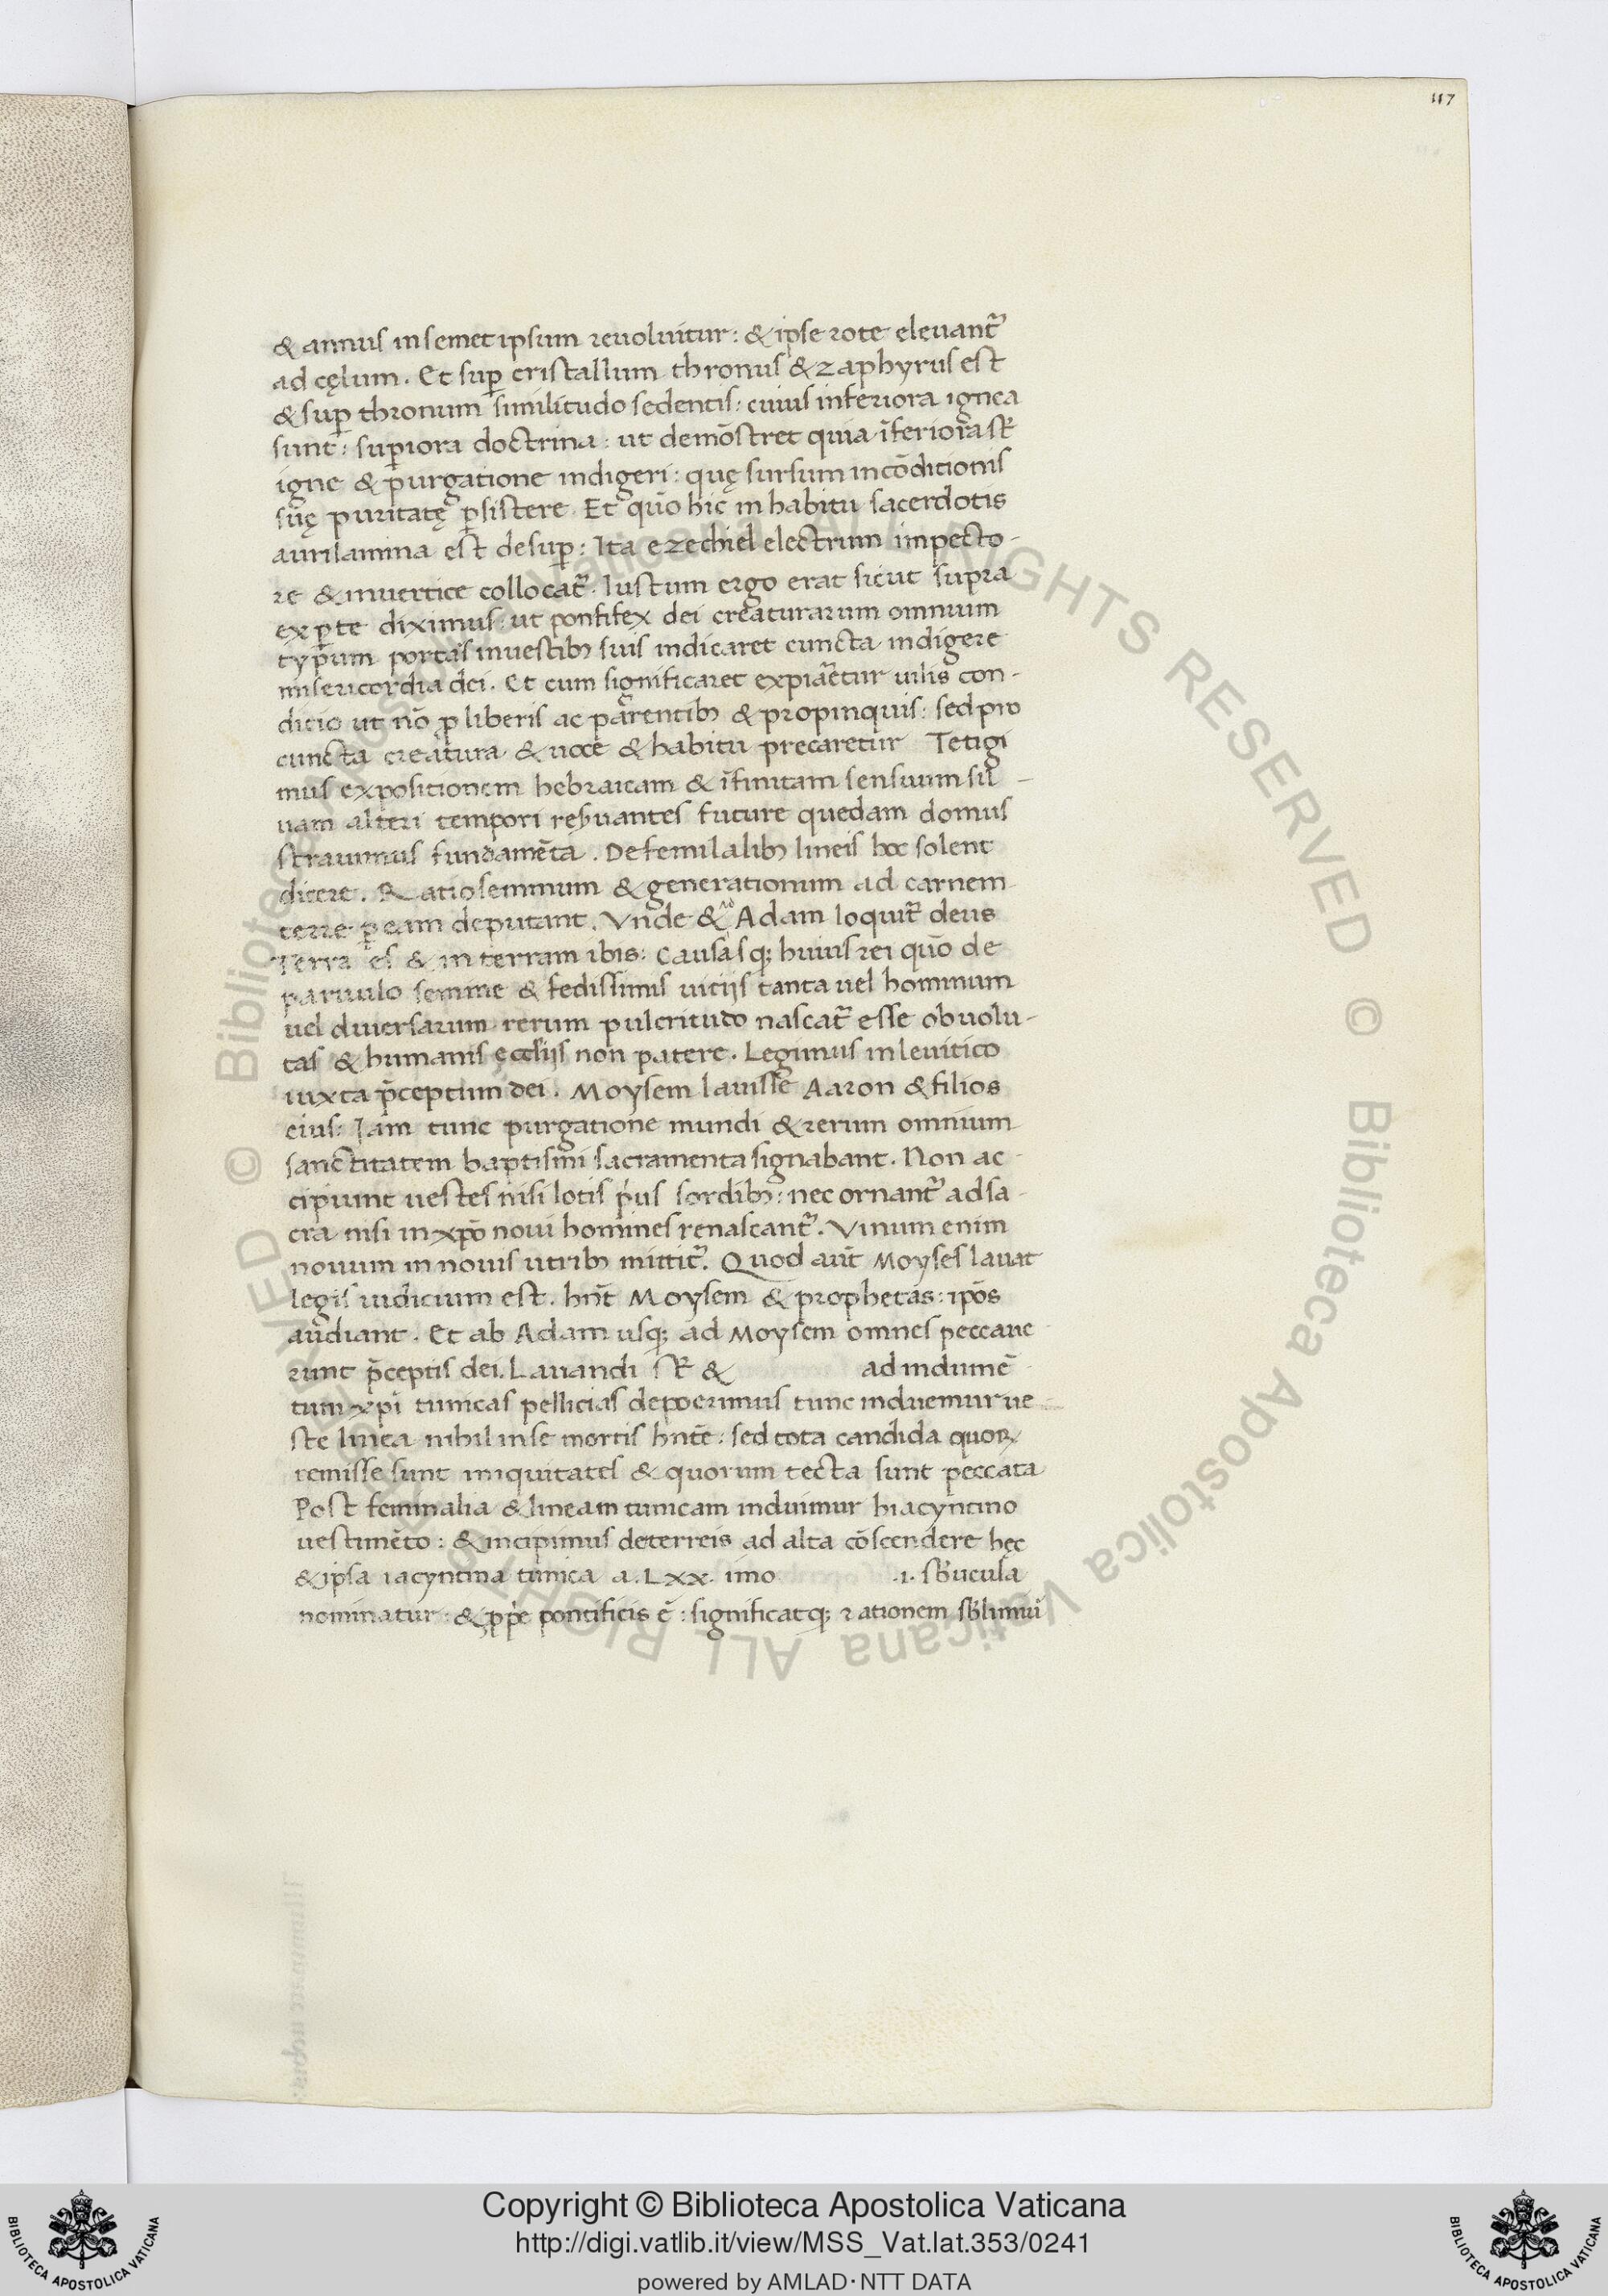 117
& annus in semet ipsum reuoluitur: & ipse rote eleuant᷑
ad cęlum. Et sup̱ cristallum thronus & zaphyrus est
& sup̱ thronum similitudo sedentis: cuius inferiora ignea
sunt: sup̱iora doctrina: ut demōstret quia īferiora st̄
igne & purgatione indigeri: quę sursum in cōditionis
suę puritatę p̱sistere. Et quō hic in habitu sacerdotis
auri lamina est desup̱: Ita ezechiel electrum in pecto-
re & in uertice collocat᷑. Iustum ergo erat sicut supra
ex p̱te diximus: ut pontifex dei creaturarum omnium
typum portās in uestib; suis indicaret cuncta indigere
misericordia dei. Et cum significaret expiaretur uilis con-
dicio ut nō p̱ liberis ac parentib; & propinquis: sed pro
cuncta creatura & uoce & habitu precaretur Tetigi
mus expositionem hebraicam & īfinitam sensuum sil
uam alteri tempori resuantes future quedam domus
strauimus fundamēta. De femilalib; lineis hoc solent
dicere. Ratio seminum & generationum ad carnem
terre p̱ eam deputant. Vnde & ad Adam loquit᷑ deus
Terra es & in terram ibis: Causasq; huius rei quō de
paruulo semine & fedissimis uitijs tanta uel hominum
uel diuersarum rerum pulcritudo nascat᷑ esse obuolu-
tas & humanis ecclijs non patere. Legimus in leuitico
iuxta p̄ceptum dei. Moysem lauisse Aaron & filios
eius: Iam tunc purgatione mundi & rerum omnium
sanctitatem baptismi sacramenta signabant. Non ac-
cipiunt uestes nisi lotis p̍us sordib;: nec ornant᷑ ad sa-
cra nisi in xpō noui homines renascant᷑. Vinum enim
nouum in nouis utrib; mittit᷑. Quod aūt Moyses lauat
legis iudicium est. hn̄t Moysem & prophetas: ipōs
audiant. Et ab Adam usq; ad Moysem omnes peccaue
runt p̄ceptis dei. Lauandi st̄ & ad indumē
tum xpi tunicas pellicias depoerimus tunc induemur ue
ste linea nihil in se mortis hn̄te: sed tota candida quoꝝ
remisse sunt iniquitates & quorum tecta sunt peccata
Post feminalia & lineam tunicam induimur hiacyntino
uestimēto: & incipimus de terreis ad alta cōscendere hęc
& ipsa iacyntina tunica a. Lxx. imo .i. sb̄ucula
nominatur: & pp̱e pontificis ē: significatq; rationem sb̄limiū
Copyright © Biblioteca Apostolica Vaticana
http://digi.vatlib.it/view/MSS_Vat.lat.353/0241
powered by AMLAD·NTT DATA
BIBLIOTECA APOSTOLICA VATICANA
BIBLIOTECA APOSTOLICA VATICANA
© Biblioteca Apostolica Vaticana ALL RIGHTS RESERVED
© Biblioteca Apostolica Vaticana ALL RIGHTS RESERVED